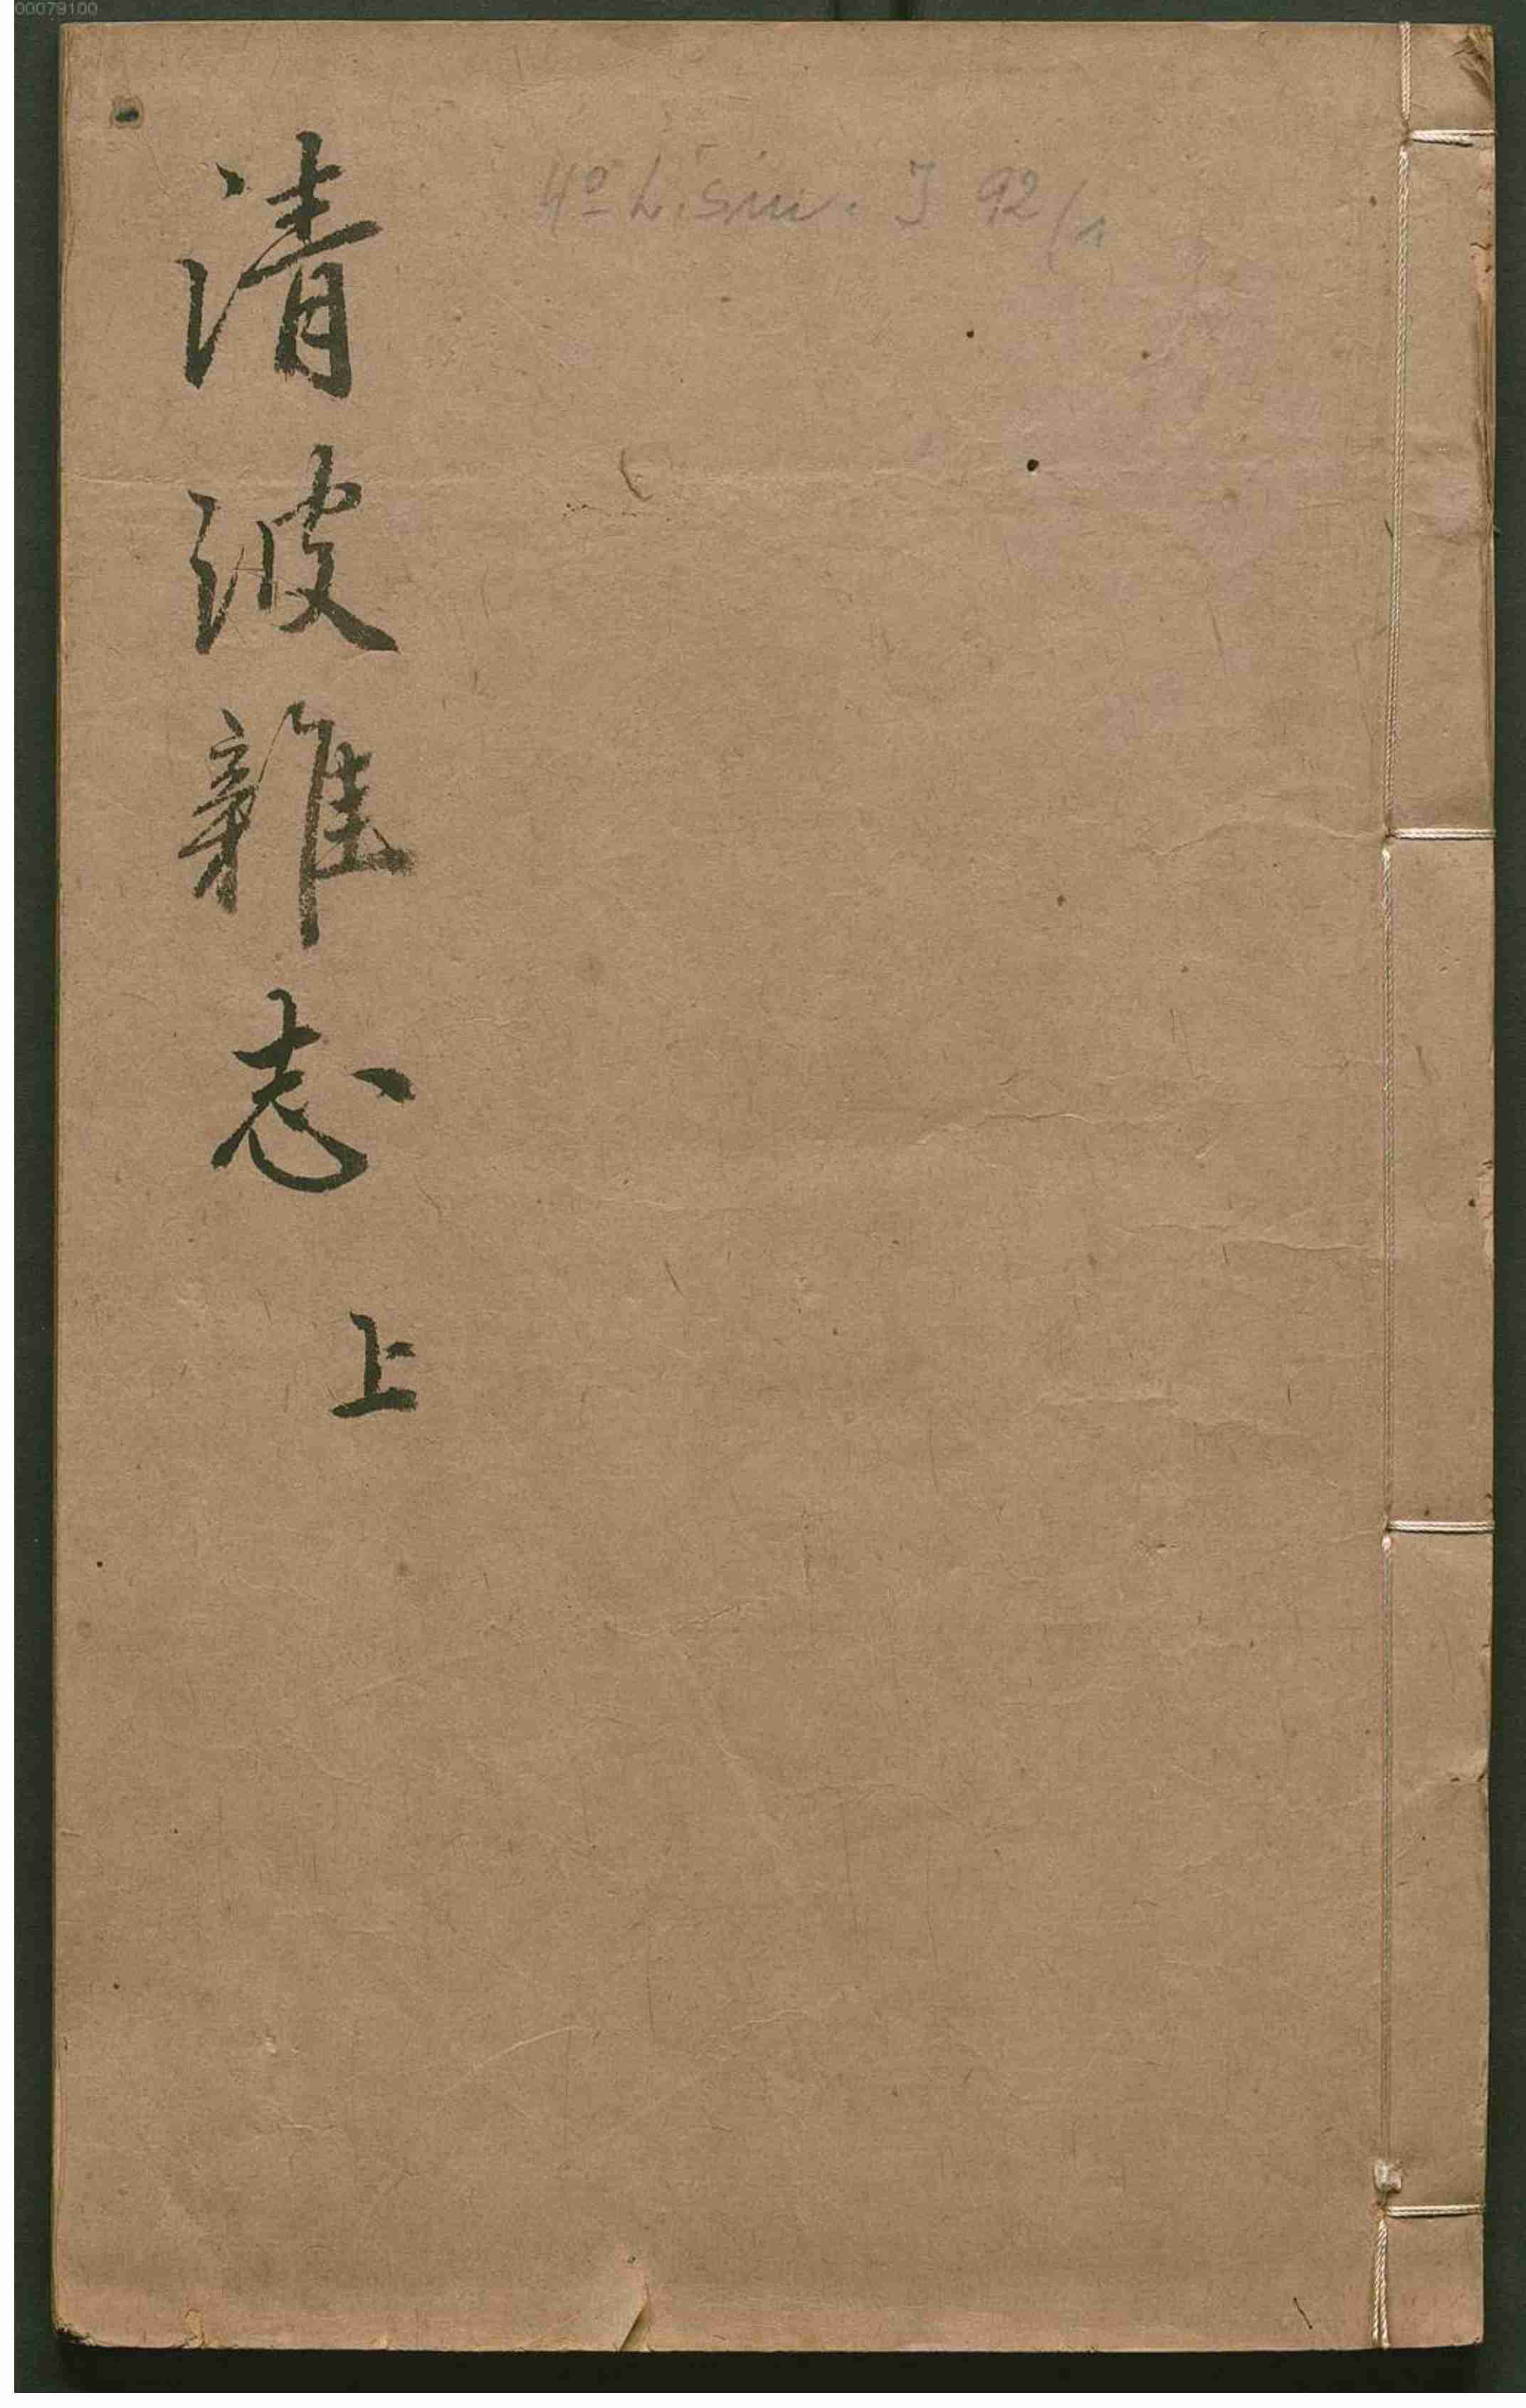 00079100
4º L. sin. J 92/1
清波雜志
上